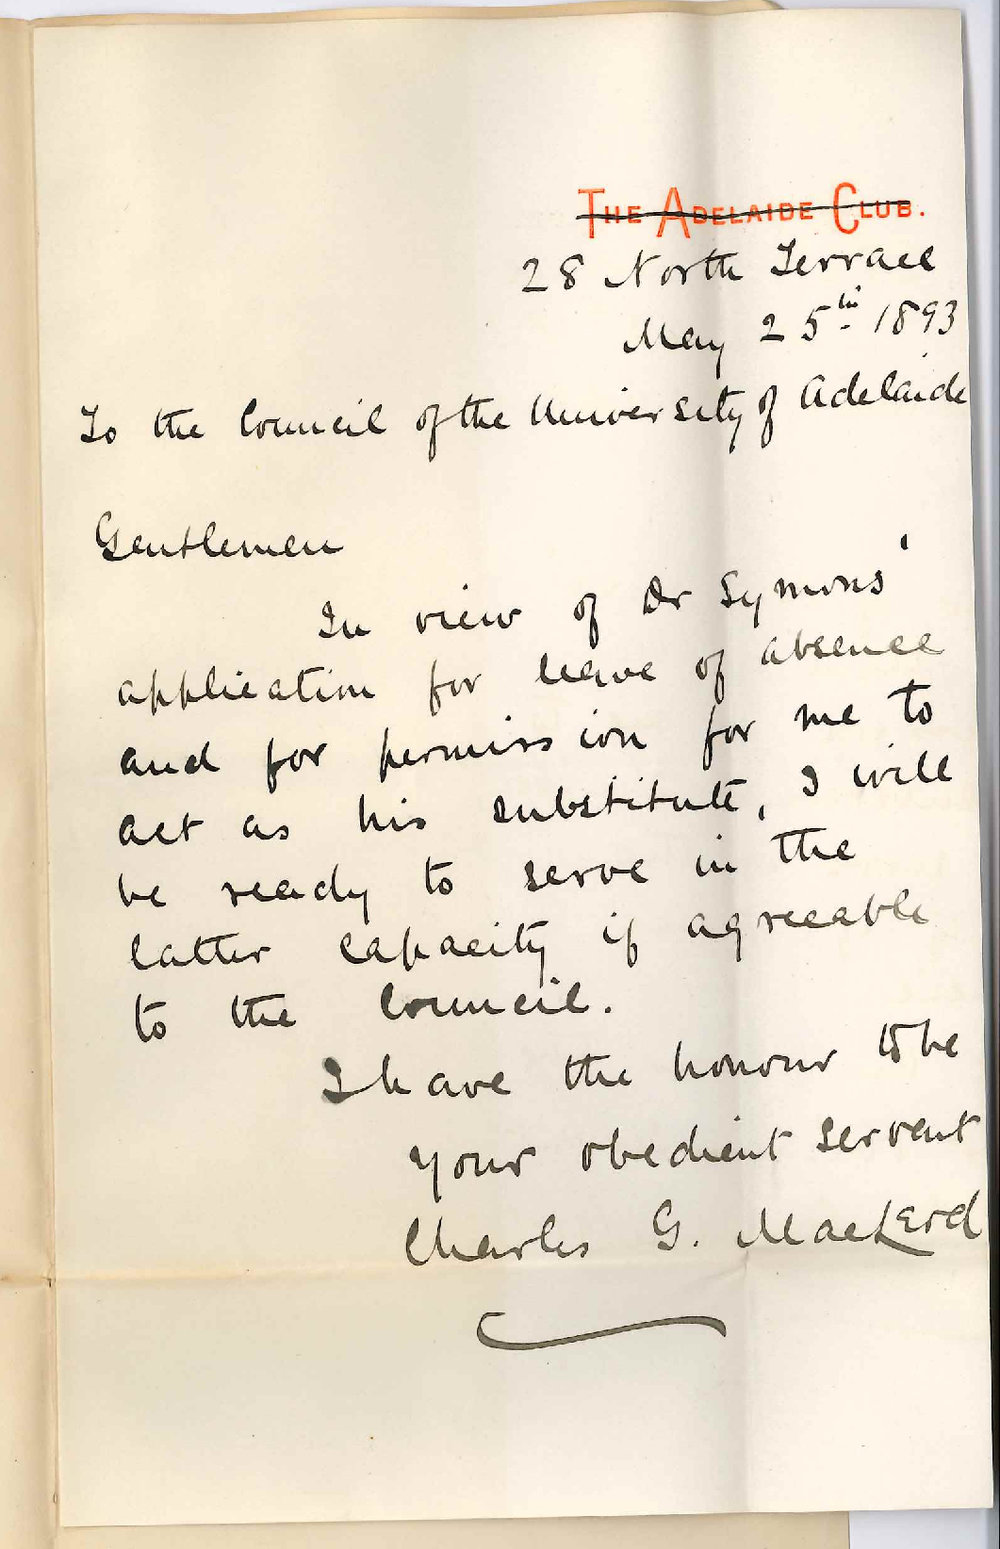 THE ADELAIDE CLUB.
28 North Terrace
May 25th 1893
To the Council of the University of Adelaide
Gentlemen
In view of Dr Symons'
application for leave of absence
and for permission for me to
act as his substitute, I will
be ready to serve in the
latter capacity if agreeable
to the Council.
I have the honour to be
Your obedient servant
Charles G. MacLeod